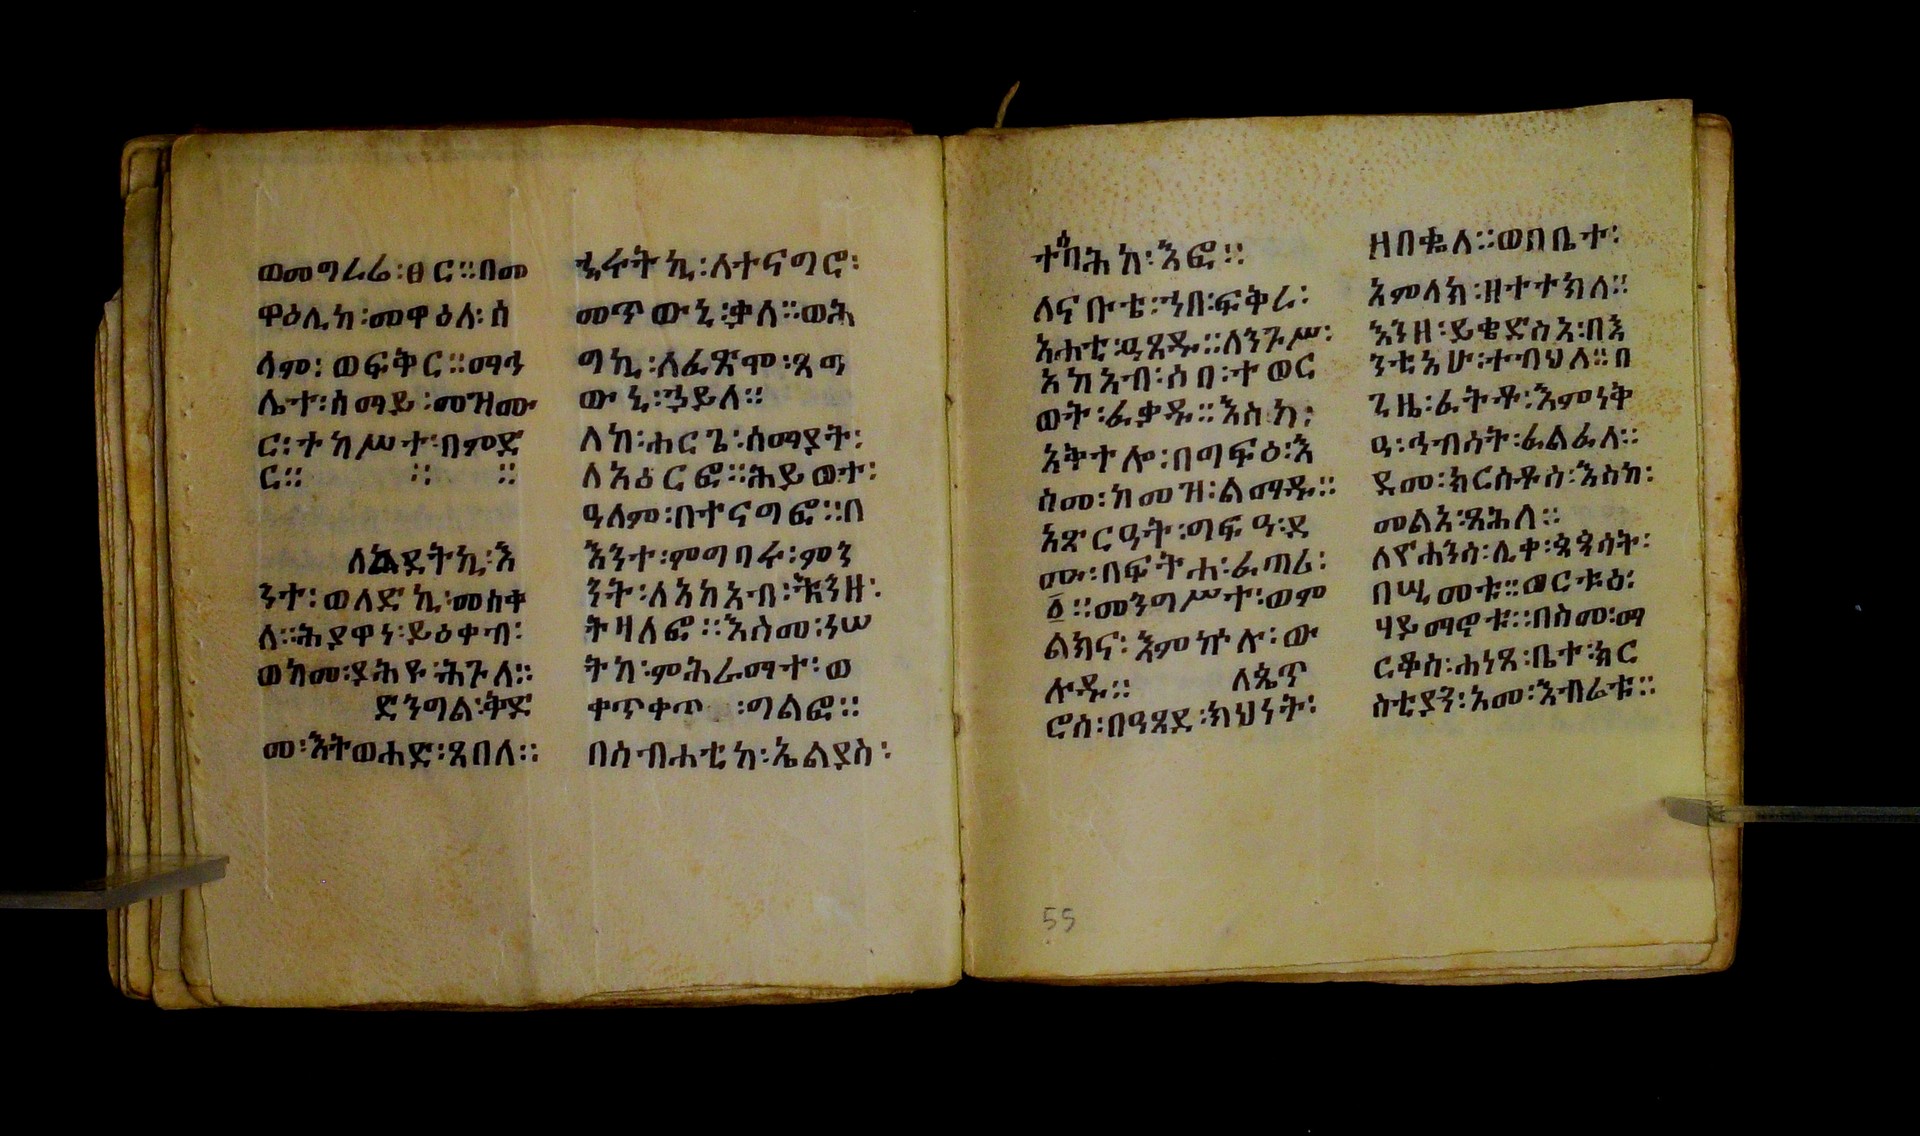 ወመግራሬ፡ፀር።በመ
ዋዕሊከ፡መዋዕለ፡ሰ
ላም፡ወፍቅር።ማኅ
ሌተ፡ሰማይ፡መዝሙ
ር፡ተከሥተ፡በምድ
ር። ። ።
ለልደትኪ፡እ
ንተ፡ወለድኪ፡መስቀ
ለ።ሕያዋነ፡ይዕቀብ፡
ወከመ፡ያሕዩ፡ሕጉለ።
ድንግል፡ቅድ
መ፡እትወሐድ፡ጻበለ።
ኂሩትኪ፡ለተናግሮ፡
መጥውኒ፡ቃለ።ወሕ
ግኪ፡ለፈጽሞ፡ጸግ
ውኒ፡ኃይለ።
ለከ፡ሐርጌ፡ሰማያት፡
ለአዕርፎ።ሕይወተ፡
ዓለም፡በተናግፎ።በ
እንተ፡ምግባሩ፡ምን
ንት፡ለአከአብ፡ትእንዘ፡
ትዛለፎ።እስመ፡ነሠ
ትከ፡ምሕራማተ፡ወ
ቀጥቀጥ፡ግልፎ።
በስብሐቲከ፡ኤልያስ፡
ተባሕከ፡እፎ።
ለናቡቴ፡ኀበ፡ፍቅራ፡
አሐቲ፡ዓጸዱ።ለንጉሥ፡
አከአብ፡ሰበ፡ተወር
ወት፡ፈቃዱ።እስከ፡
አቅተሎ፡በግፍዕ፡እ
ስመ፡ከመዝ፡ልማዱ።
አጽርዓት፡ግፍዓ፡ደ
ሙ፡በፍትሐ፡ፈጣሪ፡
፩።መንግሥተ፡ወም
ልክና፡እምኵሉ፡ው
ሉዱ። ለጴጥ
ሮስ፡በዓጸደ፡ክህነት፡
ዘበቈለ።ወበቤተ፡
አምላክ፡ዘተተክለ።
እንዘ፡ይቄድስአ፡በእ
ንቲአሁ፡ተብህለ።በ
ጊዜ፡ፈትቶ፡እምነቅ
ዓ፡ኅብስት፡ፈልፈለ።
ደመ፡ክርስቶስ፡እስከ፡
መልአ፡ጻሕለ።
ለዮሐንስ፡ሊቀ፡ጳጳሳት፡
በሢመቱ።ወርቱዕ፡
ሃይማኖቱ።በስመ፡ማ
ርቆስ፡ሐነጸ፡ቤተ፡ክር
ስቲያን፡አመ፡እብሬቱ።
55